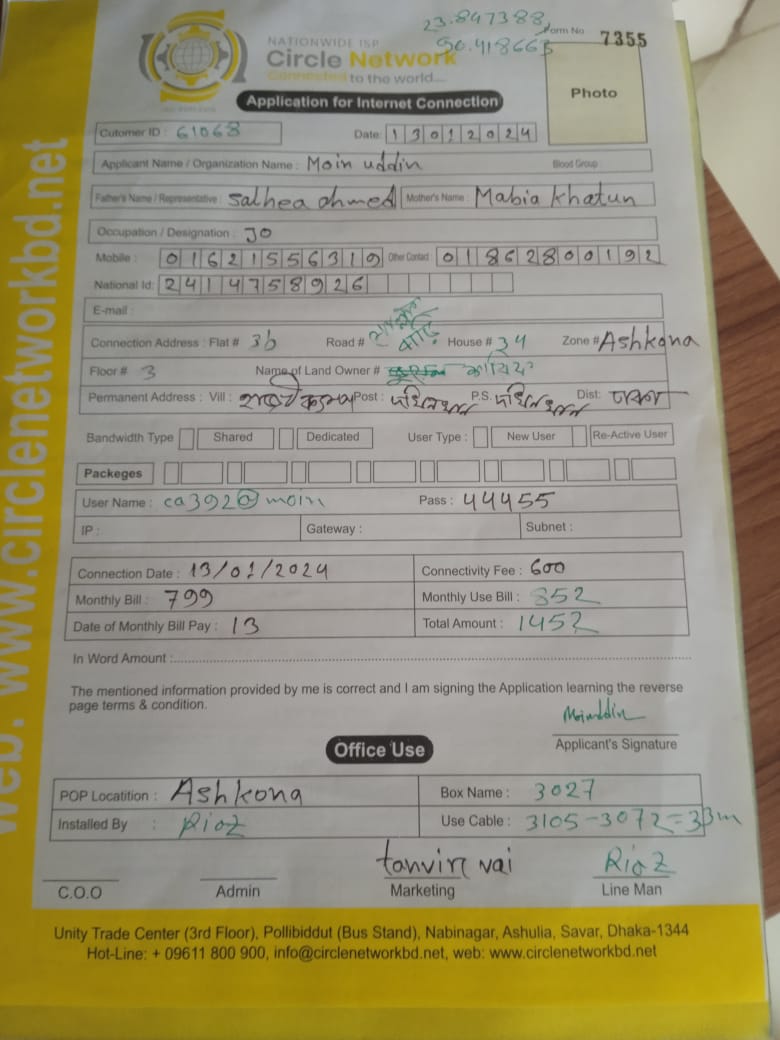 23.847388
90.418663
Form No 7355
NATIONWIDE ISP
Circle Network
Connected to the world....
Photo
Application for Internet Connection
Cutomer ID : 61068 Date: 13012024
Applicant Name / Organization Name : Moin uddin Blood Group :
Father's Name / Representative : Salhea ahmed Mother's Name : Mabia khatun
Occupation / Designation : JO
Mobile : 01621556319 Other Contact : 01862800192
National Id: 2414758926
E-mail :
Connection Address : Flat # 3b Road # House # 34 Zone # Ashkona
Floor # 3 Name of Land Owner #
Permanent Address : Vill : Post : P.S. Dist: ঢাকা
Bandwidth Type Shared Dedicated User Type : New User Re-Active User
Packeges
User Name : ca392@moin Pass : 44455
IP : Gateway : Subnet :
Connection Date : 13/01/2024 Connectivity Fee : 600
Monthly Bill : 799 Monthly Use Bill : 852
Date of Monthly Bill Pay : 13 Total Amount : 1452
In Word Amount :
The mentioned information provided by me is correct and I am signing the Application learning the reverse
page terms & condition.
Moinuddin
Applicant's Signature
Office Use
POP Locatition : Ashkona Box Name : 3027
Installed By : Riaz Use Cable : 3105-3072=33m
tanvir vai Riaz
C.O.O Admin Marketing Line Man
Unity Trade Center (3rd Floor), Pollibiddut (Bus Stand), Nabinagar, Ashulia, Savar, Dhaka-1344
Hot-Line: + 09611 800 900, info@circlenetworkbd.net, web: www.circlenetworkbd.net
web: www.circlenetworkbd.net